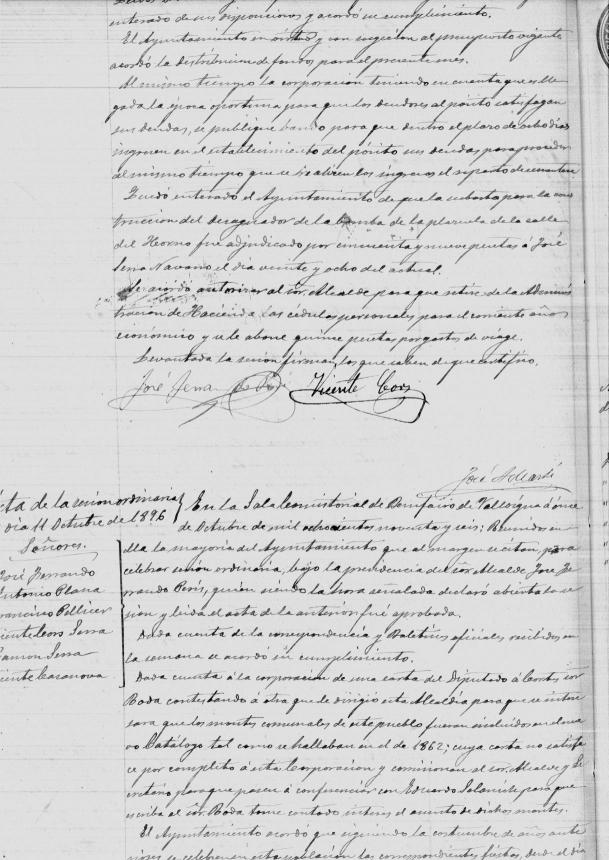 enterado de sus disposiciones y acordó su cumplimiento.
El Ayuntamiento en y con sugecion al presupuesto vigente
acordó la distribucion de fondos para el presente mes.
Al mismo tiempo la corporacion teniendo en cuenta que es lle-
gada la época oportuna para que los deudores al pósito satisfagan
sus deudas, se publique bando para que dentro el plazo de ocho dias
ingresen en el establecimiento del pósito sus deudas para proceder
al mismo tiempo que se los ingresos el reparto de
Quedó enterado el Ayuntamiento de que la subasta para la cons
truccion del desaguador de la bomba de la plazuela de la calle
del Horno fué adjudicado por cincuenta y nueve pesetas á José
Serra Navarro el dia veinte y ocho del actual.
Se acordó autorizar al sór. Alcalde para que retire de la Adminis
tracion de Hacienda las cédulas personales para el corriente año
económico y se le abone quince pesetas por gastos de viage.
Levantada la sesion firman los que saben de que certifico.
José Serra Vicente Cors
José
cta de la sesion ordinaria
dia 11 Octubre de 1896
Señores.
José Ferrando
Antonio Plana
Francisco Pellicer
Vicente Cors Serra
Ramon Serra
Vicente Casanova
En la Sala Consistorial de Benifairó de Valldigna á once
de Octubre de mil ochocientos noventa y seis: Reunidos en
ella la mayoria del Ayuntamiento que al margen se citan, para
celebrar sesion ordinaria, bajo la presidencia del sór Alcalde, José Fe-
rrando Peris, quien siendo la hora señalada declaró abierta la se
sion y leida el acta de la anterior fué aprobada.
Dada cuenta de la correspondencia y Boletines oficiales recibidos en
la semana se acordó su cumplimiento.
Dada cuenta á la corporacion de una carta del Diputado á Cortes sór
Boda contestando á otra que le dirigió esta Alcaldia para que se intere
sara que los montes comunales de este pueblo fueran incluidos en el nue
vo Catálogo tal como se hallaban en el de 1862; cuya carta no satisfa
ce por completo á esta Corporacion y comisionan al sór. Alcalde y Se
cretario para que pasen á conferenciar con Eduardo para que
escriba al sór. Boda tome con todo interes el asunto de dichos montes.
El Ayuntamiento acordó que siguiendo la costumbre de años ante
riores se celebren en esta poblacion las correspondientes fiestas, desde el dia